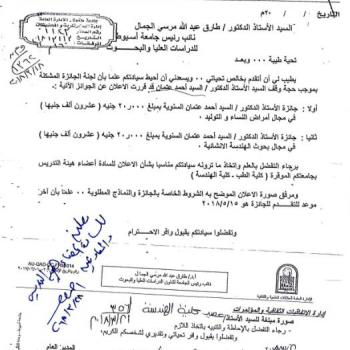 التاريخ / / ٢٠م
السيد الأستاذ الدكتور / طارق عبد الله مرسي الجمال
نائب رئيس جامعة أسيوط
للدراسات العليا والبحوث
تحية طيبة ٠٠٠ وبعد
يطيب لي أن أتقدم بخالص تحياتي ٠٠ ويسعدني أن أحيط سيادتكم علما بأن لجنة الجائزة المشكلة
بموجب حجة وقف السيد / أحمد عثمان قد قررت الإعلان عن الجوائز الآتية :
أولا : جائزة الأستاذ الدكتور / السيد أحمد عثمان السنوية بمبلغ ٢٠٠٠٠ جنيه ( عشرون ألف جنيها )
في مجال أمراض النساء و التوليد
ثانيا : جائزة الأستاذ الدكتور / السيد أحمد عثمان السنوية بمبلغ ٢٠٠٠٠ جنيه ( عشرون ألف جنيها )
في مجال بحوث الهندسة الانشائية
برجاء التفضل بالعلم واتخاذ ما ترونه سيادتكم مناسبا بشأن الاعلان للسادة أعضاء هيئة التدريس
بجامعتكم الموقرة ( كلية الطب - كلية الهندسة )
ومرفق صورة الاعلان الموضح به الشروط الخاصة بالجائزة والنماذج المطلوبة ٠٠ علما بأن آخر
موعد للتقدم للجائزة هو ٢٠١٨/٥/١٥
وتفضلوا سيادتكم بقبول وافر الاحترام
أ.د/ طارق عبدالله مرسي الجمال
نائب رئيس الجامعة لشئون الدراسات العليا والبحوث
إدارة الاتفاقيات الثقافية والمؤتمرات
صورة مبلغة للسيد الأستاذ/ عميد كلية الهندسة
رجاء التفضل بالإحاطة والتنبيه باتخاذ اللازم
وتفضلوا بقبول وافر تحياتي وتقديري لشخصكم الكريم،
المدير العام